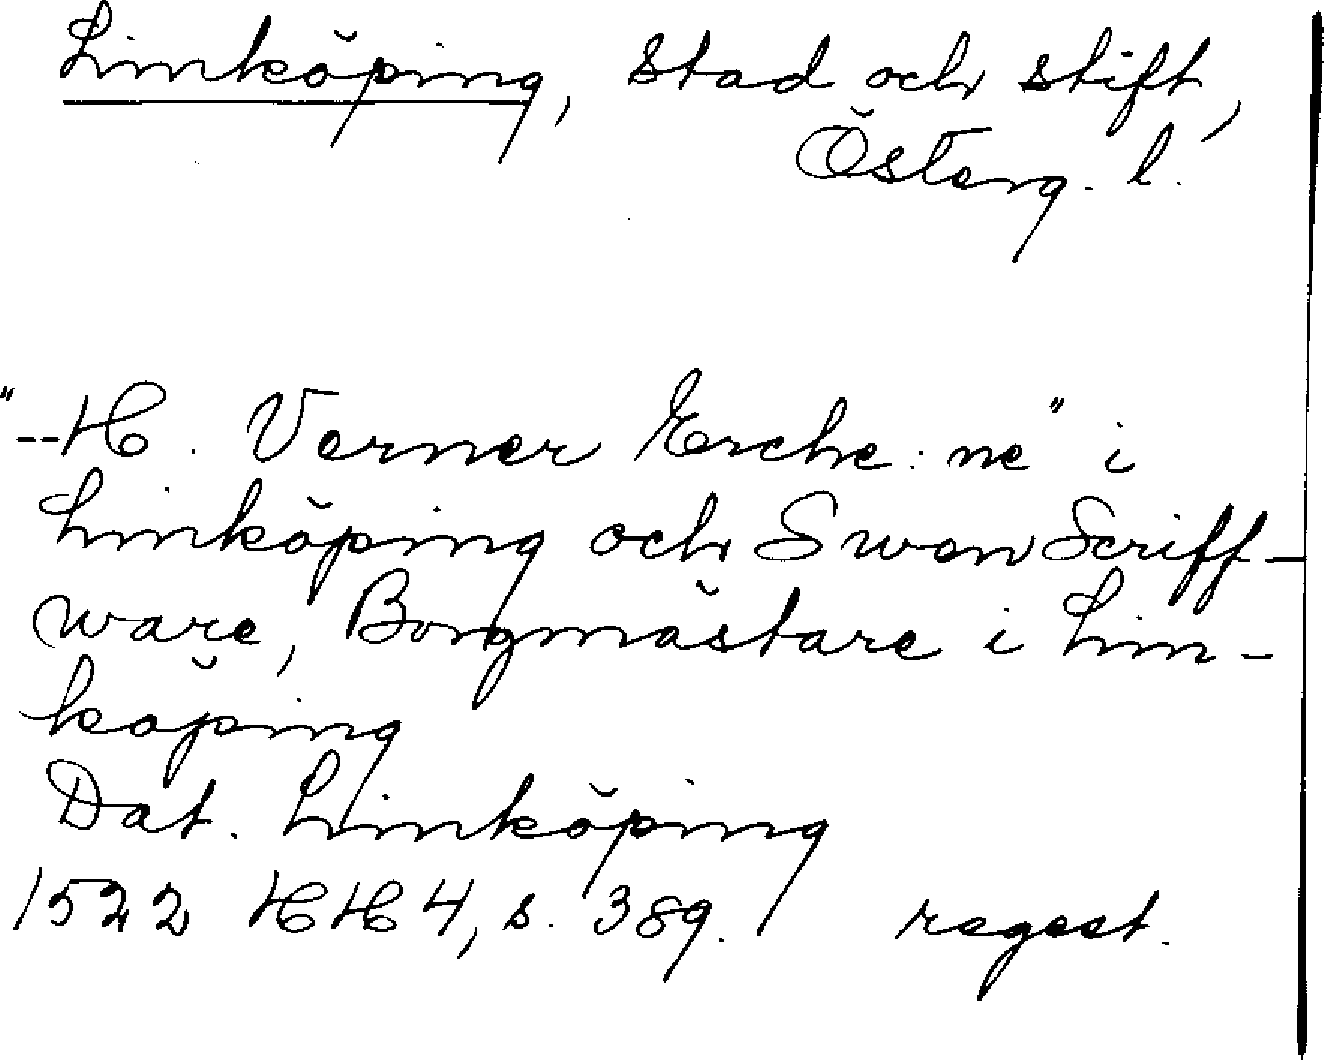 Linköping, stad och stift,
Österg. l.
"--H. Verner Erche: ne" i
Linköping och Swen Scriff-
ware, Borgmästare i Lin-
köping
Dat. Linköping
1522 HH 4, s. 389. regest.